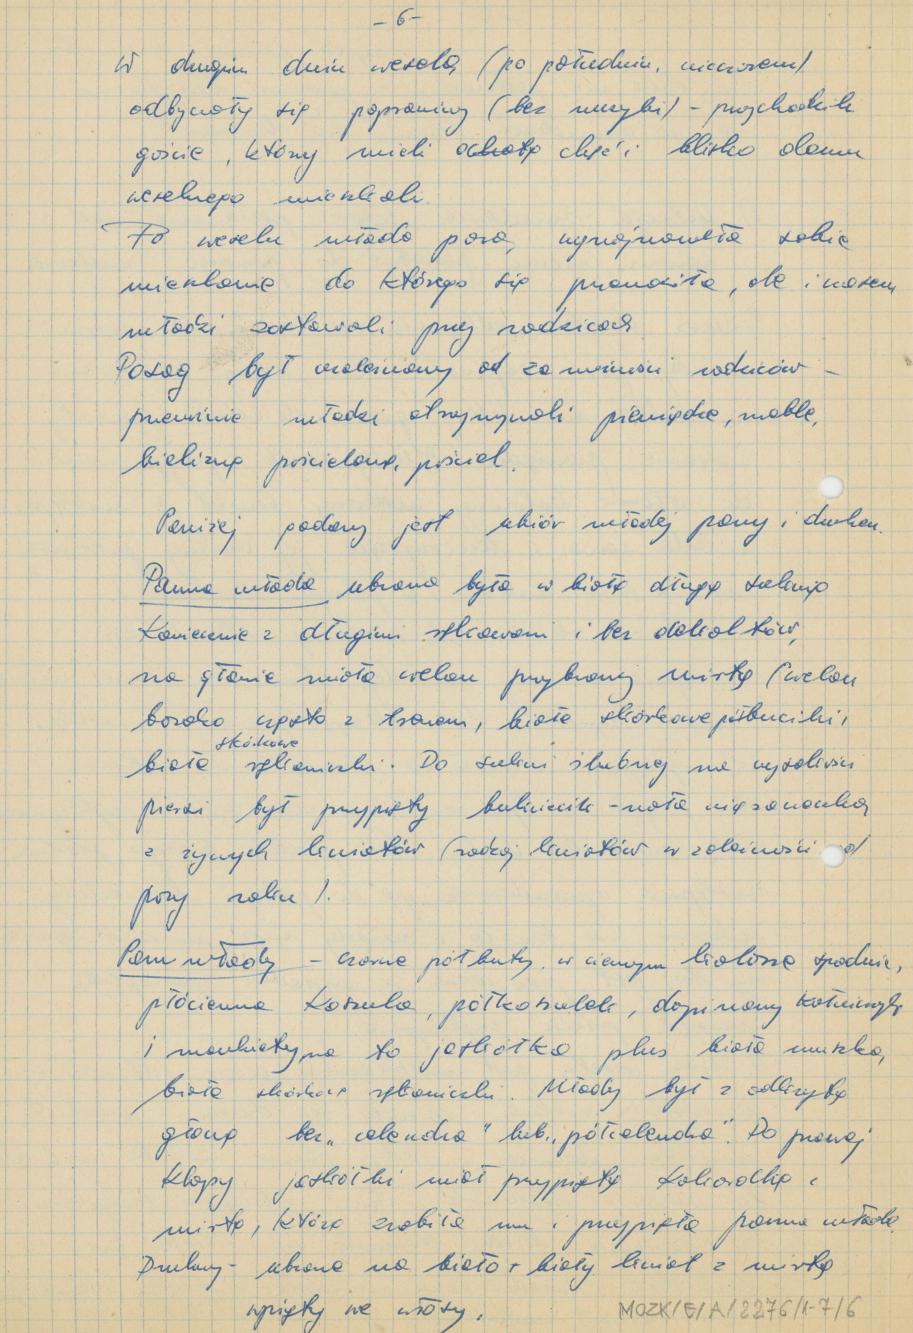 -6-
W drugim dniu wesela, (po południu, wieczorem)
odbywały się poprawiny (bez muzyki) - przychodzili
goście, którzy mieli ochotę chęć i blisko domu
weselnego mieszkali.
Po weselu młoda para, wynajmowała sobie
mieszkanie do którego się przenosiła, ale i czasem
młodzi zostawali przy rodzicach
Posag był uzależniony od zamożności rodziców -
przeważnie młodzi otrzymywali pieniądze, meble,
bieliznę pościelową, pościel.
Poniżej podany jest ubiór młodej pary i druhen.
Panna młoda ubrana była w białą długą suknię
koniecznie z długimi rękawami i bez dekoltów,
na głowie miała welon przybrany mirtą (welon
bardzo często z trenem, białe skórkowe półbuciki,
białe skórkowe rękawiczki. Do sukni ślubnej na wysokości
piersi był przypięty bukiecik - mała wiązanka
z żywych kwiatów (rodzaj kwiatów w zależności od
pory roku).
Pan młody - czarne półbuty, w ciemnym kolorze spodnie,
płócienna koszula, półkoszulek, dopinany kołnierzyk
i mankiety, na to jaskółka plus biała muszka,
białe skórkowe rękawiczki. Młody był z odkrytą
głową bez „calendra" lub „półcalendra". Do prawej
klapy jaskółki miał przypiętą kokardkę z
mirtą, którą zrobiła mu i przypięła panna młoda.
Druhny - ubrane na biało + biały kwiat z mirtą
wpięty we włosy.
MOZK/E/A/2276/1-7/6